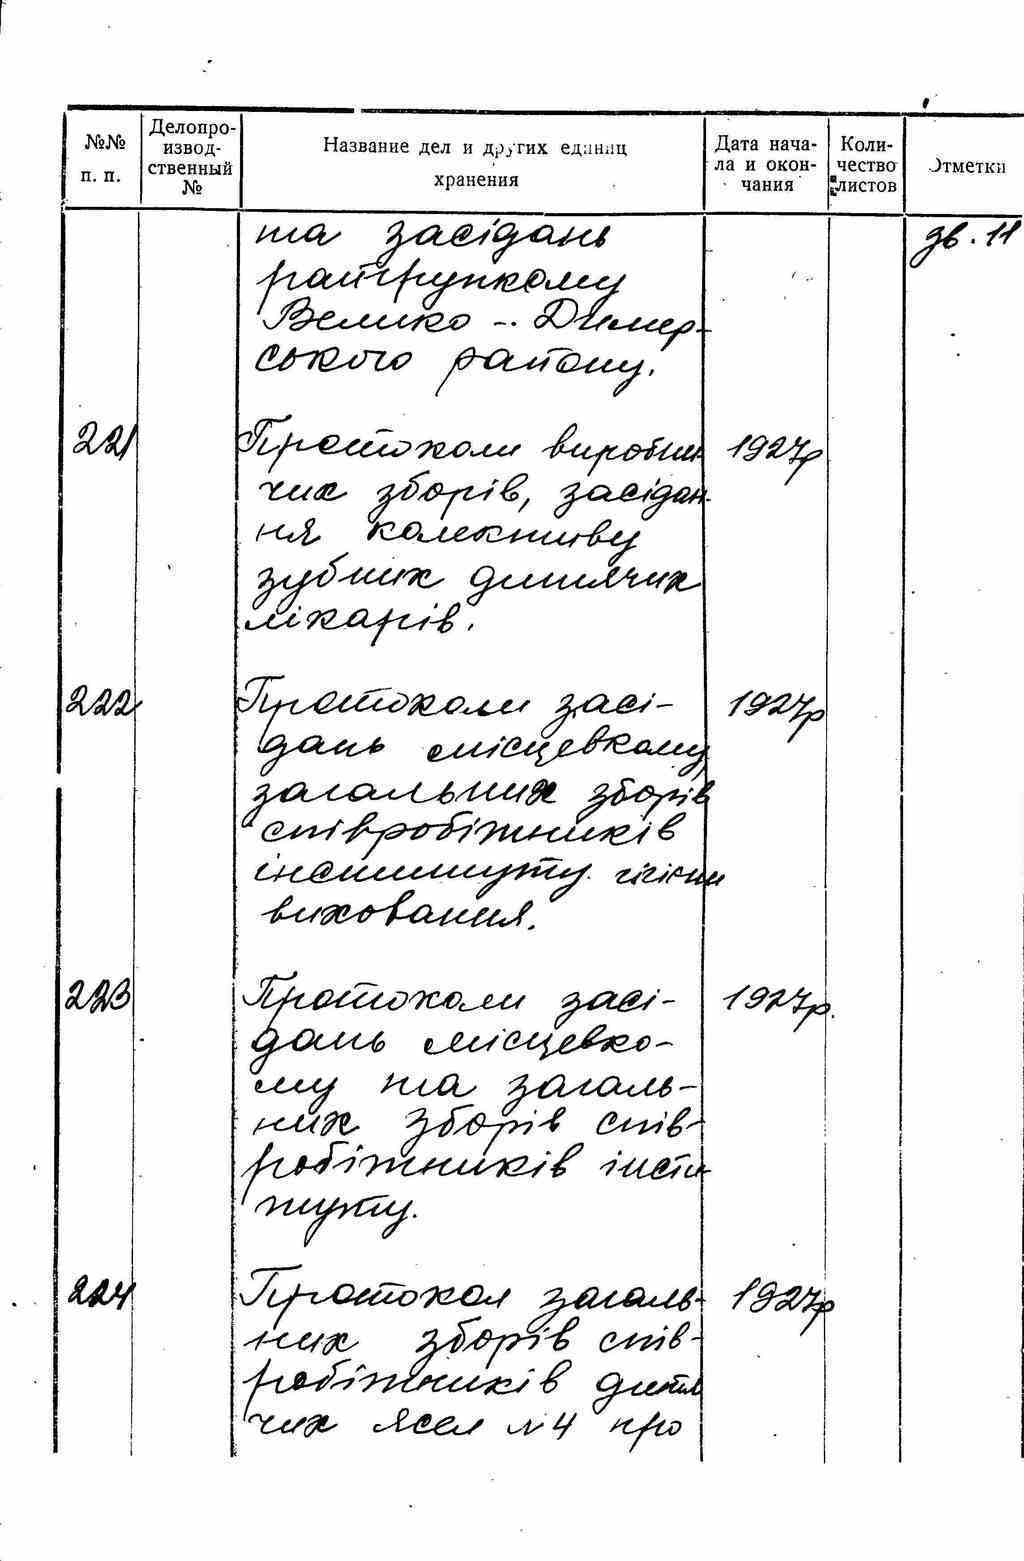 №№ п. п.
Делопроизводственный №
Название дел и других единиц хранения
Дата начала и окончания
Количество листов
Отметки
та засідань зв. 11
райтрупкому
Велико - Димер-
ського району.
221 Протоколи виробни- 1927р
чих зборів, засідан-
ня колективу
зубних дитячих
лікарів.
222 Протоколи засі- 1927р
дань місцевкому,
загальних зборів
співробітників
інституту гігієни
виховання.
223 Протоколи засі- 1927р.
дань місцевко-
му та загаль-
них зборів спів-
робітників інсти-
туту.
224 Протокол загаль- 1927р
них зборів спів-
робітників дитя
чих ясел №4 про